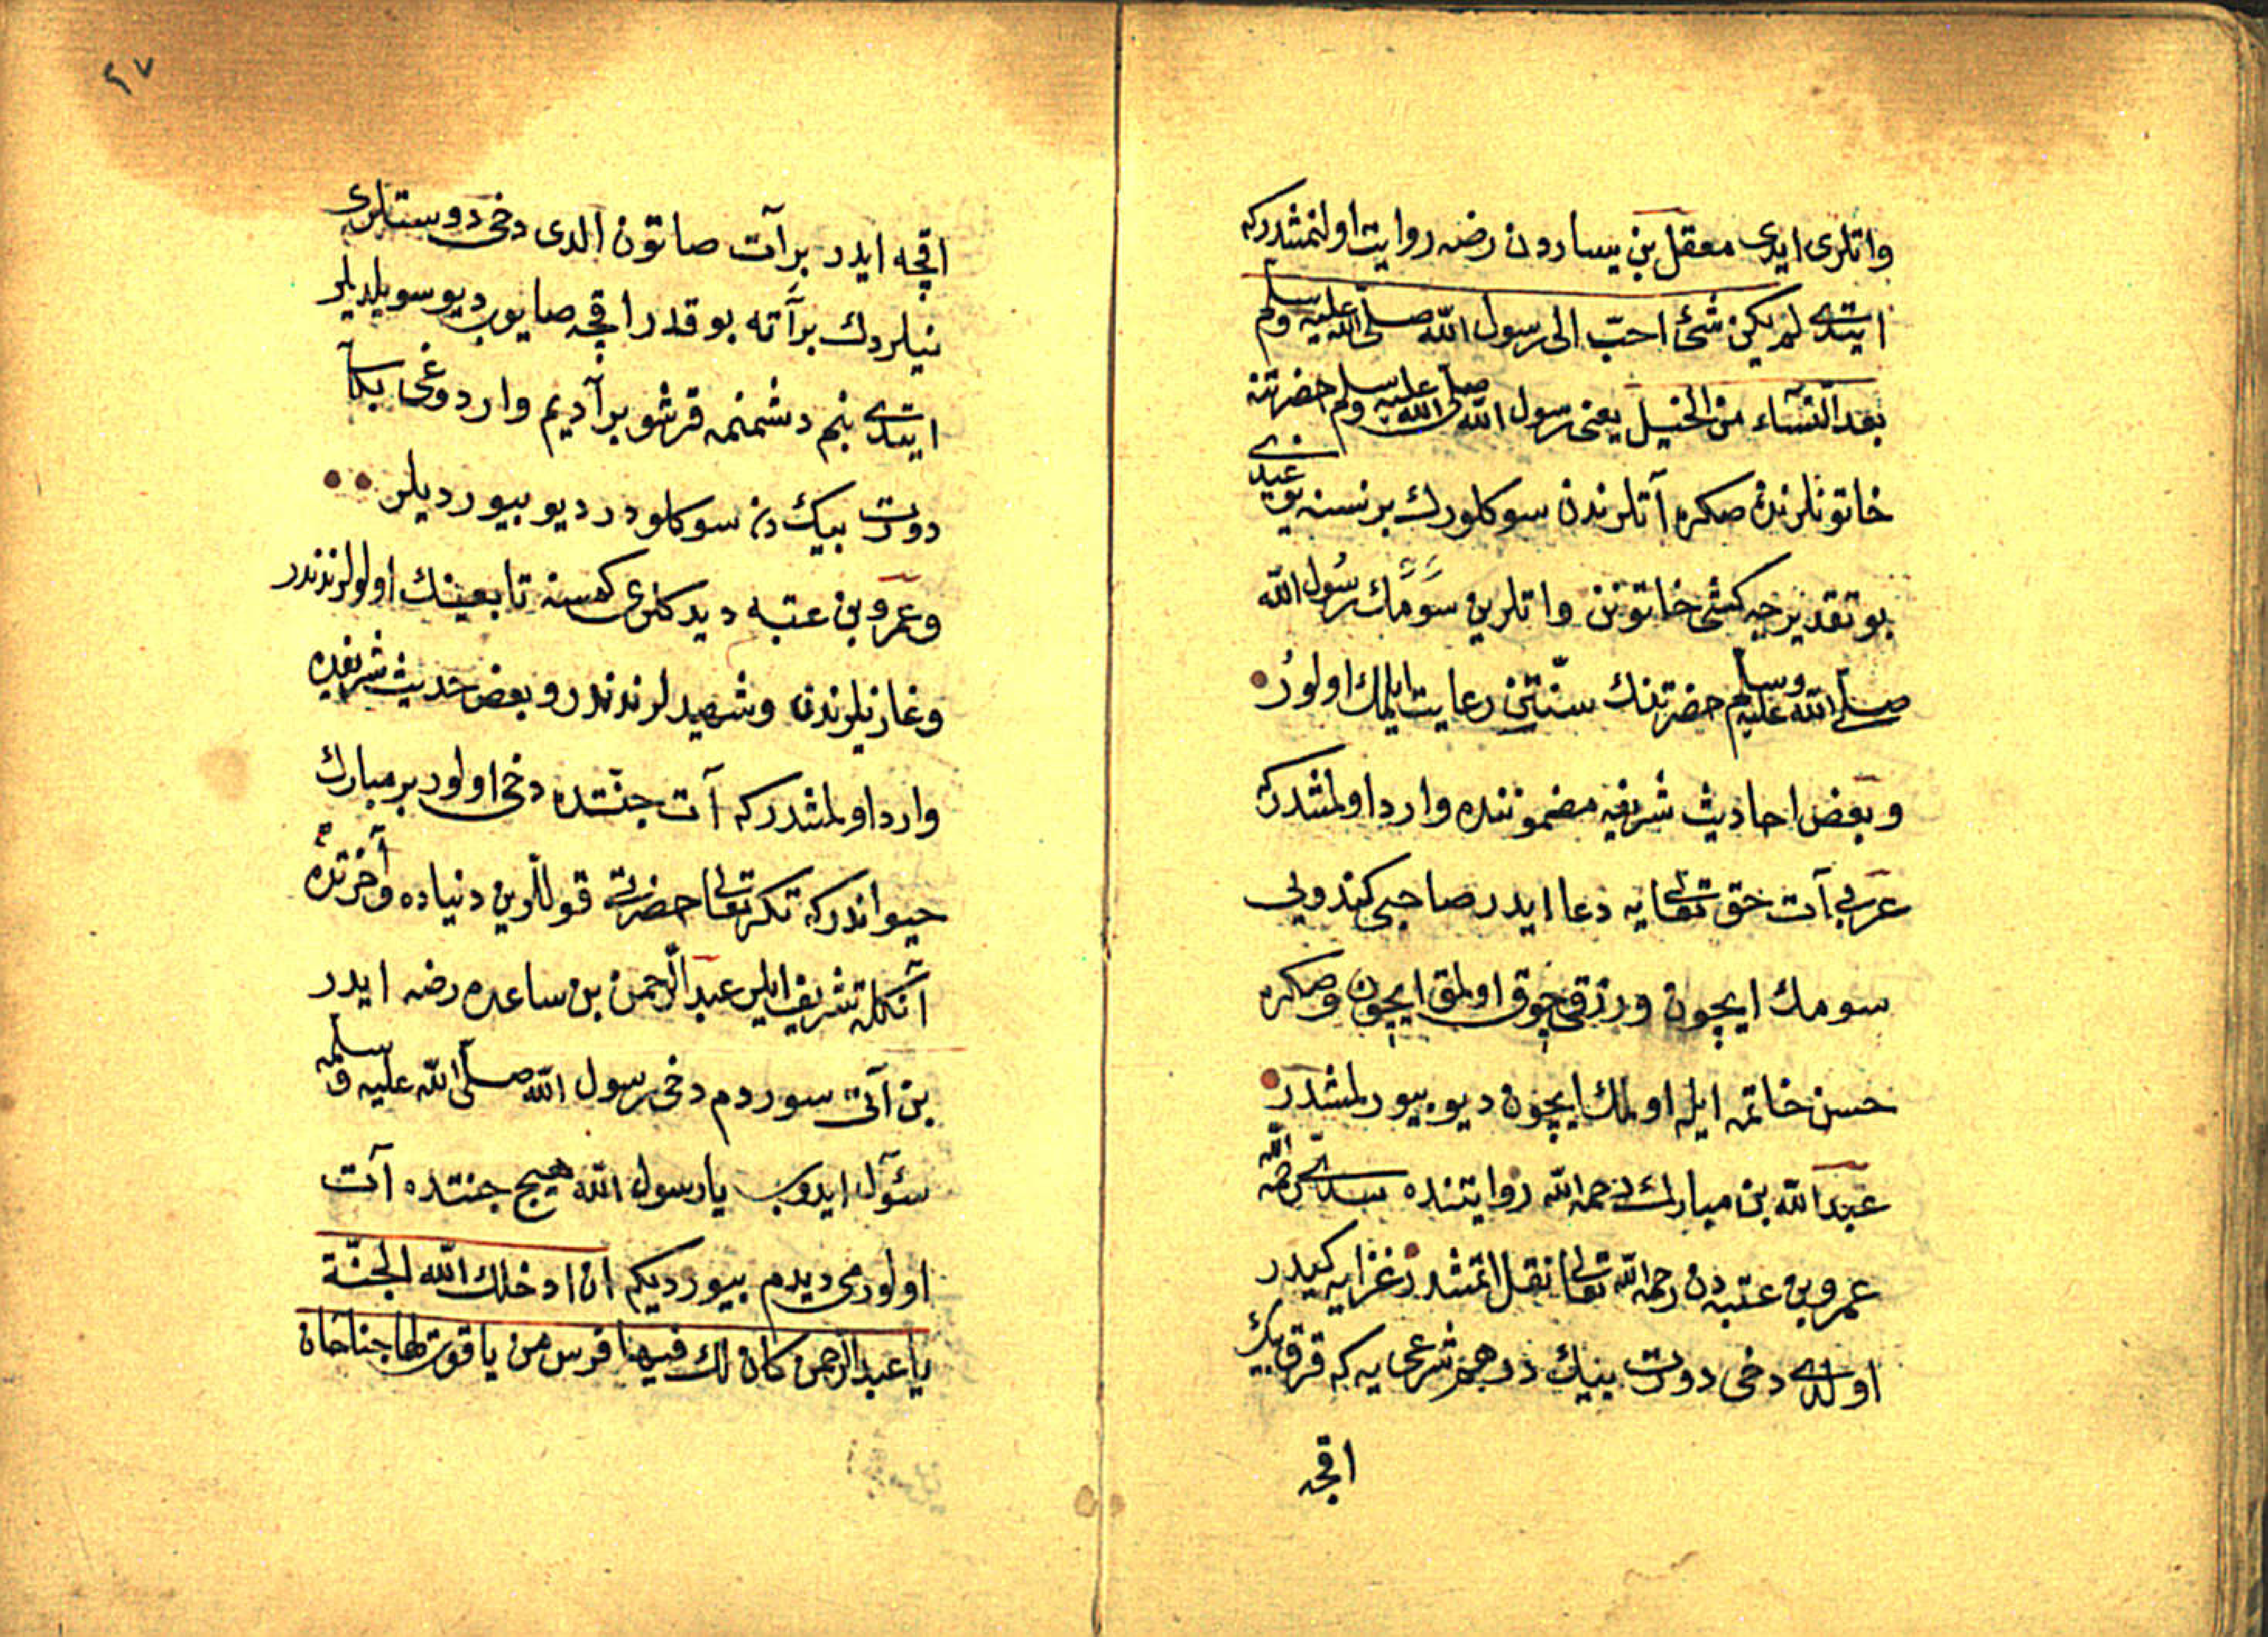 واتلری ایدی معقل بن یساردن رضه روایت اولنمشدركه
ایتدی لم یكن شئ احبّ الی رسول الله صلّی الله علیه وسلم
بعد النّسآء من الخیل یعنی رسول الله صلی الله علیه وسلم حضرتنه
خاتونلرندن صكره آتلرندن سوكلورك برنسنه یوغیدی
بو تقدیرجه كشی خاتونن واتلرین سَومَك رسُول الله
صلّی الله علیه وسلم حضرتنك سنّتنی رعایت ایلمك اولور
وبعض احادیث شریفه مضموننده وارد اولمشدركه
عربی آت حق تعالی یه دعا ایدر صاحبی كندویی
سومك ایچون ورزقی چوق اولمق ایچون وصكره
حسن خاتمه ایله اولمك ایچون دیو بیورلمشدر
عبد الله بن مبارك رحمه الله روایتنده سدّی رحمه الله
عمرو بن عتبه دن رحمه الله تعالی نقل اتمشدر غزایه كیدر
اولدی دخی دورت بیك درهم شرعی یه كه قرق بیك
اقچه
٤٧
اقچه ایدر برآت صاتون الدی دخی دوستلری
نیلردك برآته بو قدر اقچه صایوب دیو سویلدیلر
ایتدی بنم دشمنمه قرشو برآدیم واردوغی بكآ
دورت بیك دن سوكلودر دیو بیوردیلر
وعمرو بن عتبه دیدكلری كمسنه تابعینك اولولرندندر
وغازیلرندن وشهیدلرندندر وبعض حدیث شریفده
وارد اولمشدركه آت جنّتده دخی اولور بر مبارك
حیواندركه تكری تعالی حضرتی قوللرین دنیاده وآخرتده
آنكله تشریف ایلر عبد الرّحمن بن ساعده رضه ایدر
بن آتی سوردم دخی رسول الله صلّی الله علیه وسلمه
سئوآل ایدوب یا رسول الله هیچ جنتده آت
اولورمی دیدم بیوردیكم ان ادخلك الله الجنّة
یا عبد الرحمن كان لك فیها فرس من یاقوت لها جناحان